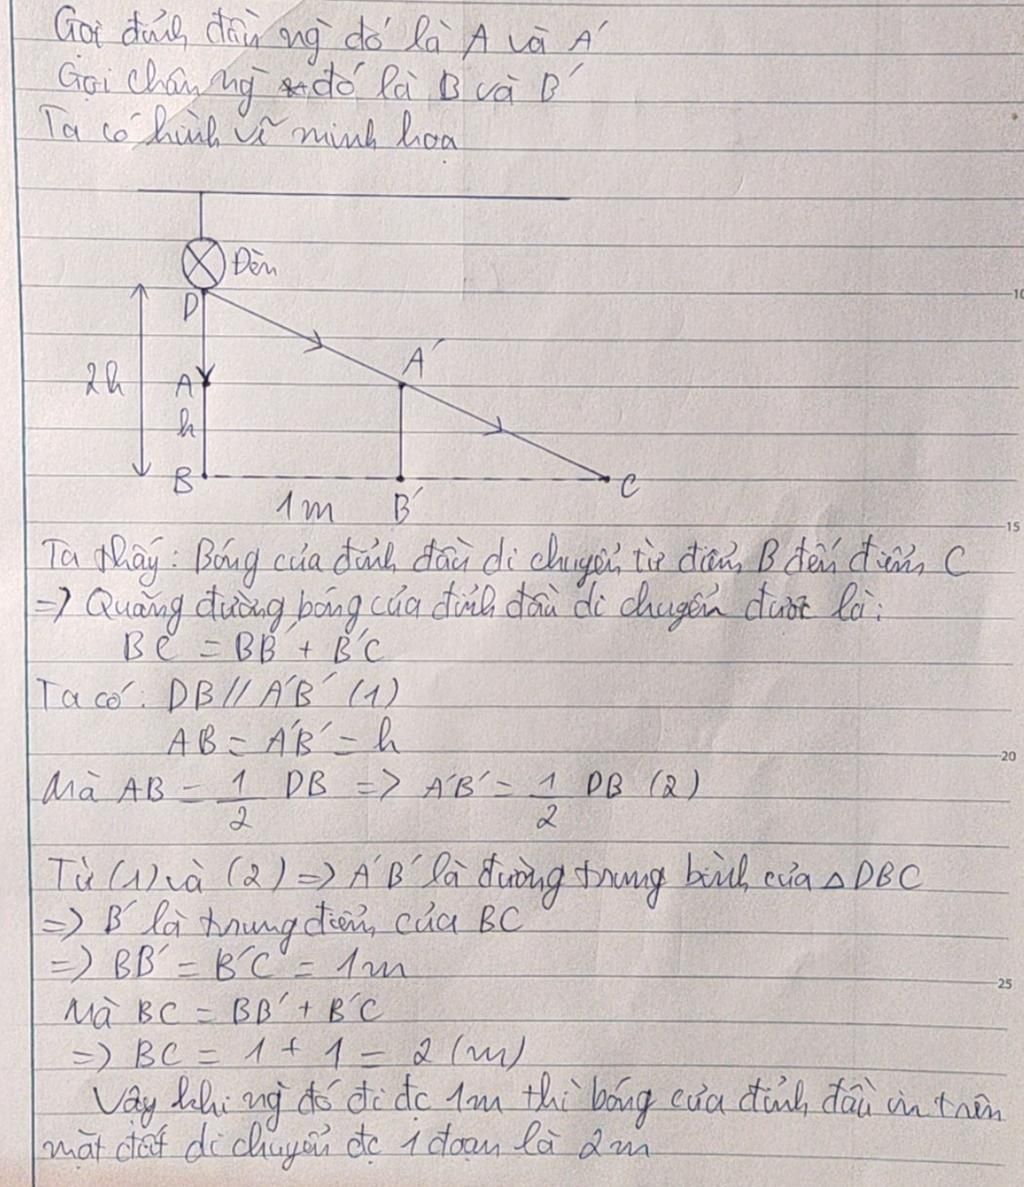 Gọi đỉnh đầu ng đó là A và A'
Gọi chân ng đó là B và B'
Ta có hình vẽ minh hoạ
Đèn
D
A'
2h
A
h
B
1m
B'
C
10
15
Ta thấy: Bóng của đỉnh đầu di chuyển từ điểm B đến điểm C
=> Quãng đường bóng của đỉnh đầu di chuyển được là:
BC = BB' + B'C
Ta có: DB // A'B' (1)
AB = A'B' = h
20
Mà AB = 1/2 DB => A'B' = 1/2 DB (2)
Từ (1) và (2) => A'B' là đường trung bình của △DBC
=> B' là trung điểm của BC
=> BB' = B'C = 1m
25
Mà BC = BB' + B'C
=> BC = 1 + 1 = 2 (m)
Vậy khi ng đó đi đc 1m thì bóng của đỉnh đầu in trên
mặt đất di chuyển đc 1 đoạn là 2m